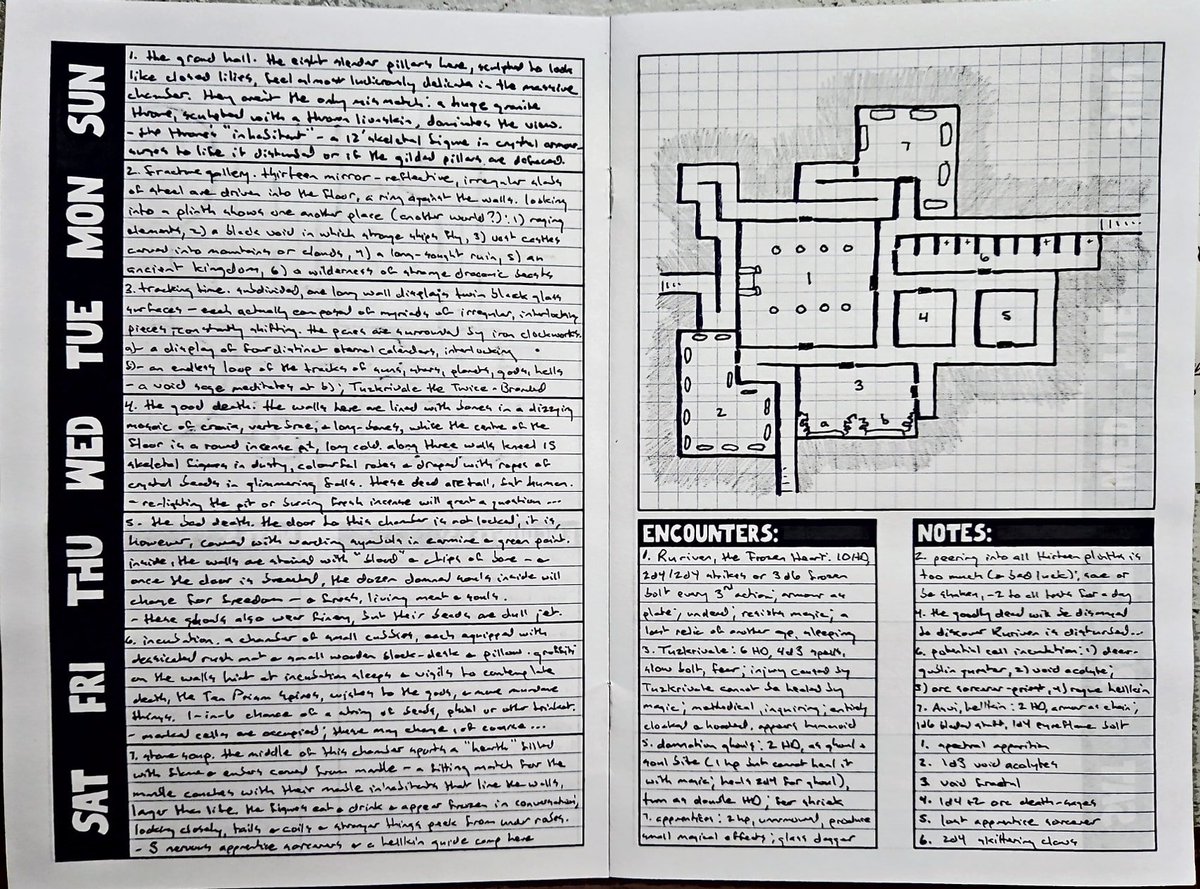 SUN
MON
TUE
WED
THU
FRI
SAT
1. the grand hall. the eight slender pillars here, sculpted to look
like closed lilies, feel almost ludicrously delicate in the massive
chamber. they aren't the only mismatch: a huge granite
throne, sculpted with a thrown lionskin, dominates the view.
- the throne's "inhabitant" - a 12' skeletal figure in crystal armour -
surges to life if disturbed or if the gilded pillars are defaced.
2. fracture gallery. thirteen mirror-reflective, irregular slabs
of steel are driven into the floor, a ring against the walls. looking
into a plinth shows one another place (another world?): 1) raging
elements, 2) a black void in which strange ships fly, 3) vast castles
carved into mountains or clouds, 4) a long-sought ruin, 5) an
ancient kingdom, 6) a wilderness of strange draconic beasts
3. tracking time. subdivided, one long wall displays twin black glass
surfaces - each actually composed of myriads of irregular, interlocking
pieces, constantly shifting. the panes are surrounded by iron clockworks.
a) a display of four distinct eternal calendars, interlocking
b) - an endless loop of the tracks of suns, stars, planets, gods, hells
- a void sage meditates at b); Tuzkrivale the Twice-Branded
4. the good death: the walls here are lined with bones in a dizzying
mosaic of crania, vertebrae, & long-bones, while the centre of the
floor is a round incense pit, long cold. along three walls kneel 15
skeletal figures in dusty, colourful robes & draped with ropes of
crystal beads in glimmering falls. these dead are tall, but human.
- re-lighting the pit or burning fresh incense will grant a question ...
5. the bad death. the door to this chamber is not locked; it is,
however, carved with warding symbols in carmine & green paint.
inside, the walls are stained with "blood" & chips of bone - &
once the door is breached, the dozen damned souls inside will
charge for freedom - & fresh, living meat & souls.
- these ghouls also wear finery, but their beads are dull jet.
6. incubation. a chamber of small cubbies, each equipped with
dessicated rush mat & small wooden block-desk & pillow. graffiti
on the walls hint at incubation sleeps & vigils to contemplate
death, the Ten Prism Spires, wishes to the gods, & more mundane
things. 1-in-6 chance of a string of beads, phial or other trinket.
- marked cells are occupied; these may change, of course...
7. stone soup. the middle of this chamber sports a "hearth" filled
with flame & embers carved from marble - a fitting match for the
marble couches with their marble inhabitants that line the walls,
larger than life. the figures eat & drink & appear frozen in conversation;
looking closely, tails & coils & stranger things peek from under robes.
- 5 nervous apprentice sorcerers & a hellkin guide camp here
7
1
6
4
5
3
2
a
b
ENCOUNTERS:
1. Ruriven, the Frozen Heart. 10HD,
2d4/2d4 strikes or 3d6 frozen
bolt every 3rd action; armour as
plate; undead; resists magic; a
last relic of another age, sleeping
3. Tuzkrivale: 6 HD, 4d3 spears,
slow bolt, fear; injury caused by
Tuzkrivale cannot be healed by
magic; methodical, inquiring; entirely
cloaked & hooded, appears humanoid
5. damnation ghouls: 2 HD, as ghoul +
soul bite (1 hp but cannot heal it
with magic; heals 2d4 for ghoul),
turn as double HD; fear shriek
7. apprentices: 2hp, unarmoured, produce
small magical effects; glass dagger
NOTES:
2. peering into all thirteen plinths is
too much (& bad luck); save or
be shaken, -2 to all tests for a day
4. the goodly dead will be dismayed
to discover Ruriven is disturbed...
6. potential cell incubation: 1) deer-
goblin punter, 2) void acolyte;
3) orc sorcerer-priest, 4) rogue hellkin
7. Anvi, hellkin: 2 HD, armour as chain;
1d6 bladed staff, 1d4 pyreflame bolt
1. spectral apparition
2. 1d3 void acolytes
3. void fractal
4. 1d4+2 orc death-sages
5. lost apprentice sorcerer
6. 2d4 skittering claws